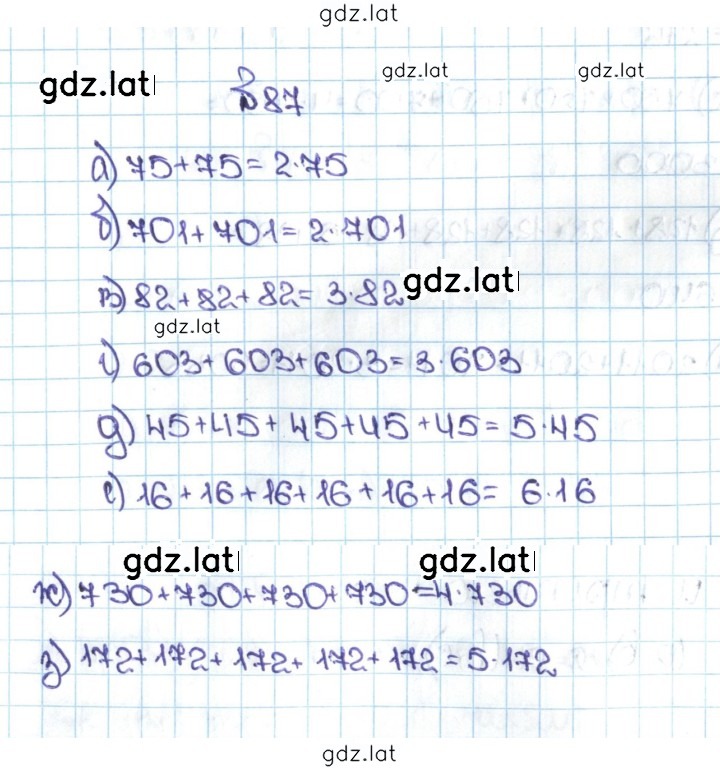 gdz.lat
gdz.lat gdz.lat gdz.lat
№87
а) 75+75=2·75
б) 701+701=2·701
в) 82+82+82=3·82 gdz.lat
gdz.lat
г) 603+603+603=3·603
д) 45+45+45+45+45=5·45
е) 16+16+16+16+16+16=6·16
gdz.lat gdz.lat
ж) 730+730+730+730=4·730
з) 172+172+172+172+172=5·172
gdz.lat